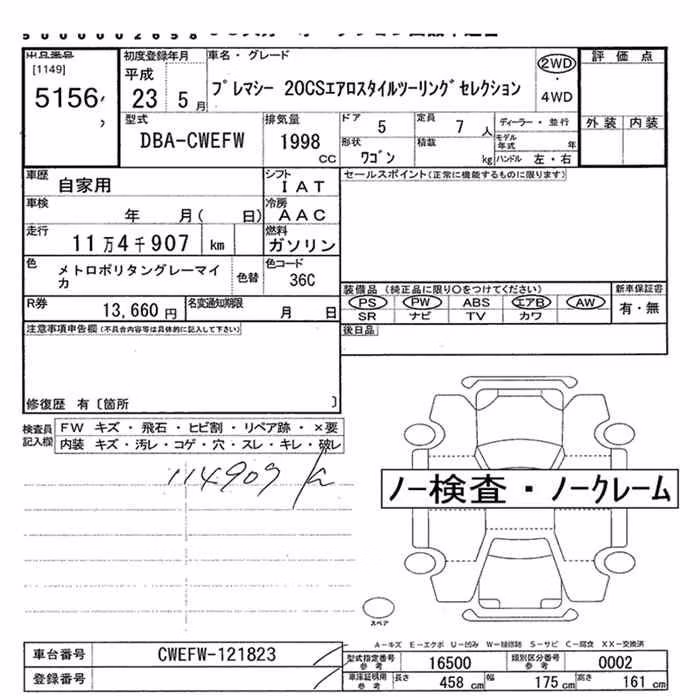 5000002658
出品番号 初度登録年月 車名・グレード 2WD 評価点
[1149] 平成
5156 23 5月 プレマシー 20CSエアロスタイルツーリングセレクション
・
4WD
型式 排気量 ドア 5 定員 7人 ディーラー・並行 外装 内装
DBA-CWEFW 1998cc 形状 ワゴン 積載 kg モデル年式 年
ハンドル 左・右
車歴 自家用 シフト IAT セールスポイント(正常に機能するものに限ります)
車検 年 月( 日) 冷房 AAC
走行 11万4千907 km 燃料 ガソリン
色 メトロポリタングレーマイカ 色替 色コード 36C
装備品 (純正品に限り○をつけてください) 新車保証書
PS PW ABS エアB AW 有・無
SR ナビ TV カワ
R券 13,660円 名変通知期限 月 日
後日品
注意事項申告欄(不具合内容等は具体的に記入して下さい)
修復歴 有〔箇所 〕
検査員記入欄 FW キズ・飛石・ヒビ割・リペア跡・×要
内装 キズ・汚レ・コゲ・穴・スレ・キレ・破レ
114909
ノー検査・ノークレーム
スペア
A－キズ E－エクボ U－凹み W－補修跡 S－サビ C－腐食 XX－交換済
車台番号 CWEFW-121823 型式指定番号 参考 16500 類別区分番号 参考 0002
登録番号 車庫証明用 参考 長さ 458cm 幅 175cm 高さ 161cm